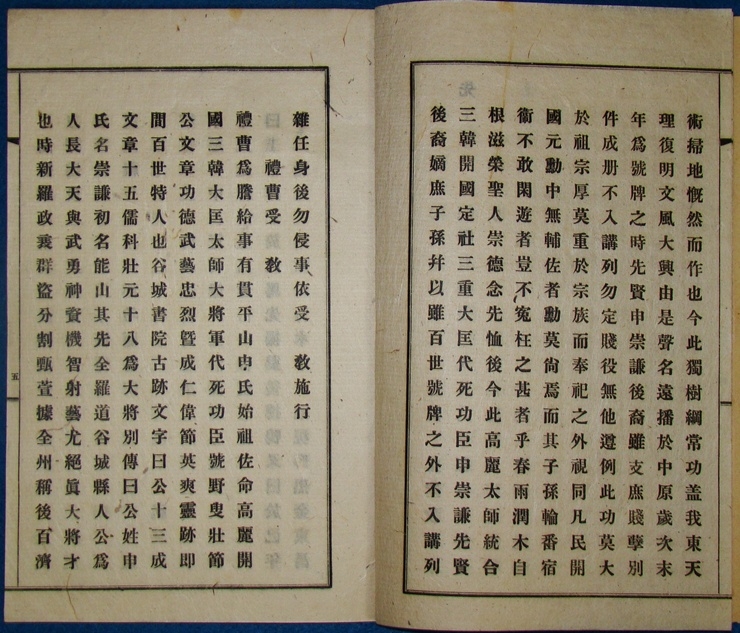 術掃地慨然而作也今此獨樹綱常功盖我東天
理復明文風大興由是聲名遠播於中原歲次末
年爲號牌之時先賢申崇謙後裔雖支庶賤孽別
件成册不入講列勿定賤役無他遵例此功莫大
於祖宗厚莫重於宗族而奉祀之外視同凡民開
國元勳中無輔佐者勳莫尙焉而其子孫輪番宿
衛不敢閑遊者豈不寃枉之甚者乎春雨潤木自
根滋榮聖人崇德念先恤後今此高麗太師統合
三韓開國定社三重大匡代死功臣申崇謙先賢
後裔嫡庶子孫幷以雖百世號牌之外不入講列
雜任身後勿侵事依受 敎施行
禮曹受 敎
禮曹爲謄給事有貫平山申氏始祖佐命高麗開
國三韓大匡太師大將軍代死功臣號野叟壯節
公文章功德武藝忠烈曁成仁偉節英爽靈跡即
間百世特人也谷城書院古跡文字曰公十三成
文章十五儒科壯元十八爲大將別傳曰公姓申
氏名崇謙初名能山其先全羅道谷城縣人公爲
人長大天與武勇神資機智射藝尤絕眞大將才
也時新羅政衰群盜分割甄萱據全州稱後百濟
五